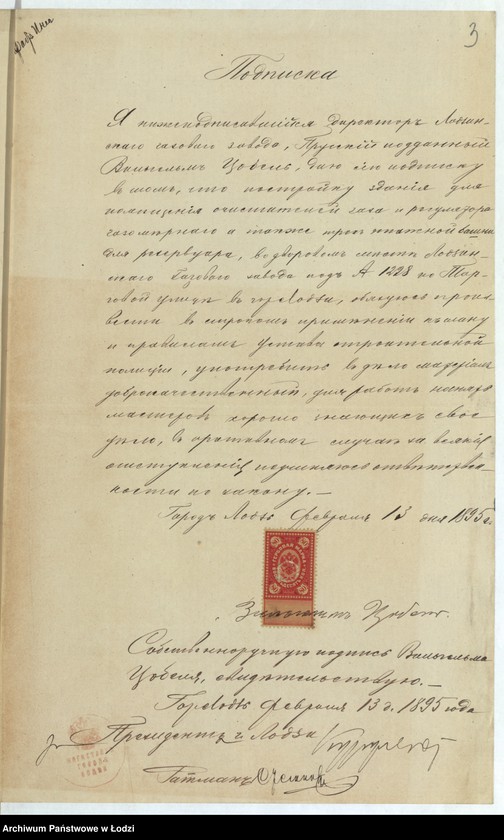 3
Подписка
Я нижеподписавшийся Директоръ Лодзин-
скаго газоваго завода, Прусскій подданный
Вильгельмъ Цобель, даю сію подписку
въ томъ, что постройку зданія для
помѣщенія очистителей газа и регулятора
газомѣрнаго а также трехъ этажной башни
для резервуара, въ дворовомъ мѣстѣ Лодзин-
скаго Газоваго завода подъ № 1228 по Тар-
говой улицѣ въ гор. Лодзи, обязуюсь произ-
вести въ строгомъ примѣненіи къ плану
и правиламъ Устава строительной
полиціи, употребить въ дѣло матеріалъ
доброкачественный, для работъ нанять
мастеровъ хорошо знающихъ свое
дѣло, въ противномъ случаѣ за всякія
отступленія подчиняюсь отвѣтствен-
ности по закону. —
Городъ Лодзь Февраля 13 дня 1895 г.
Цобель.
Собственноручную подпись Вильгельма
Цобеля, свидѣтельствую. —
Гор. Лодзь Февраля 13 д. 1895 года
За Президентъ г. Лодзи
Archiwum Państwowe w Łodzi